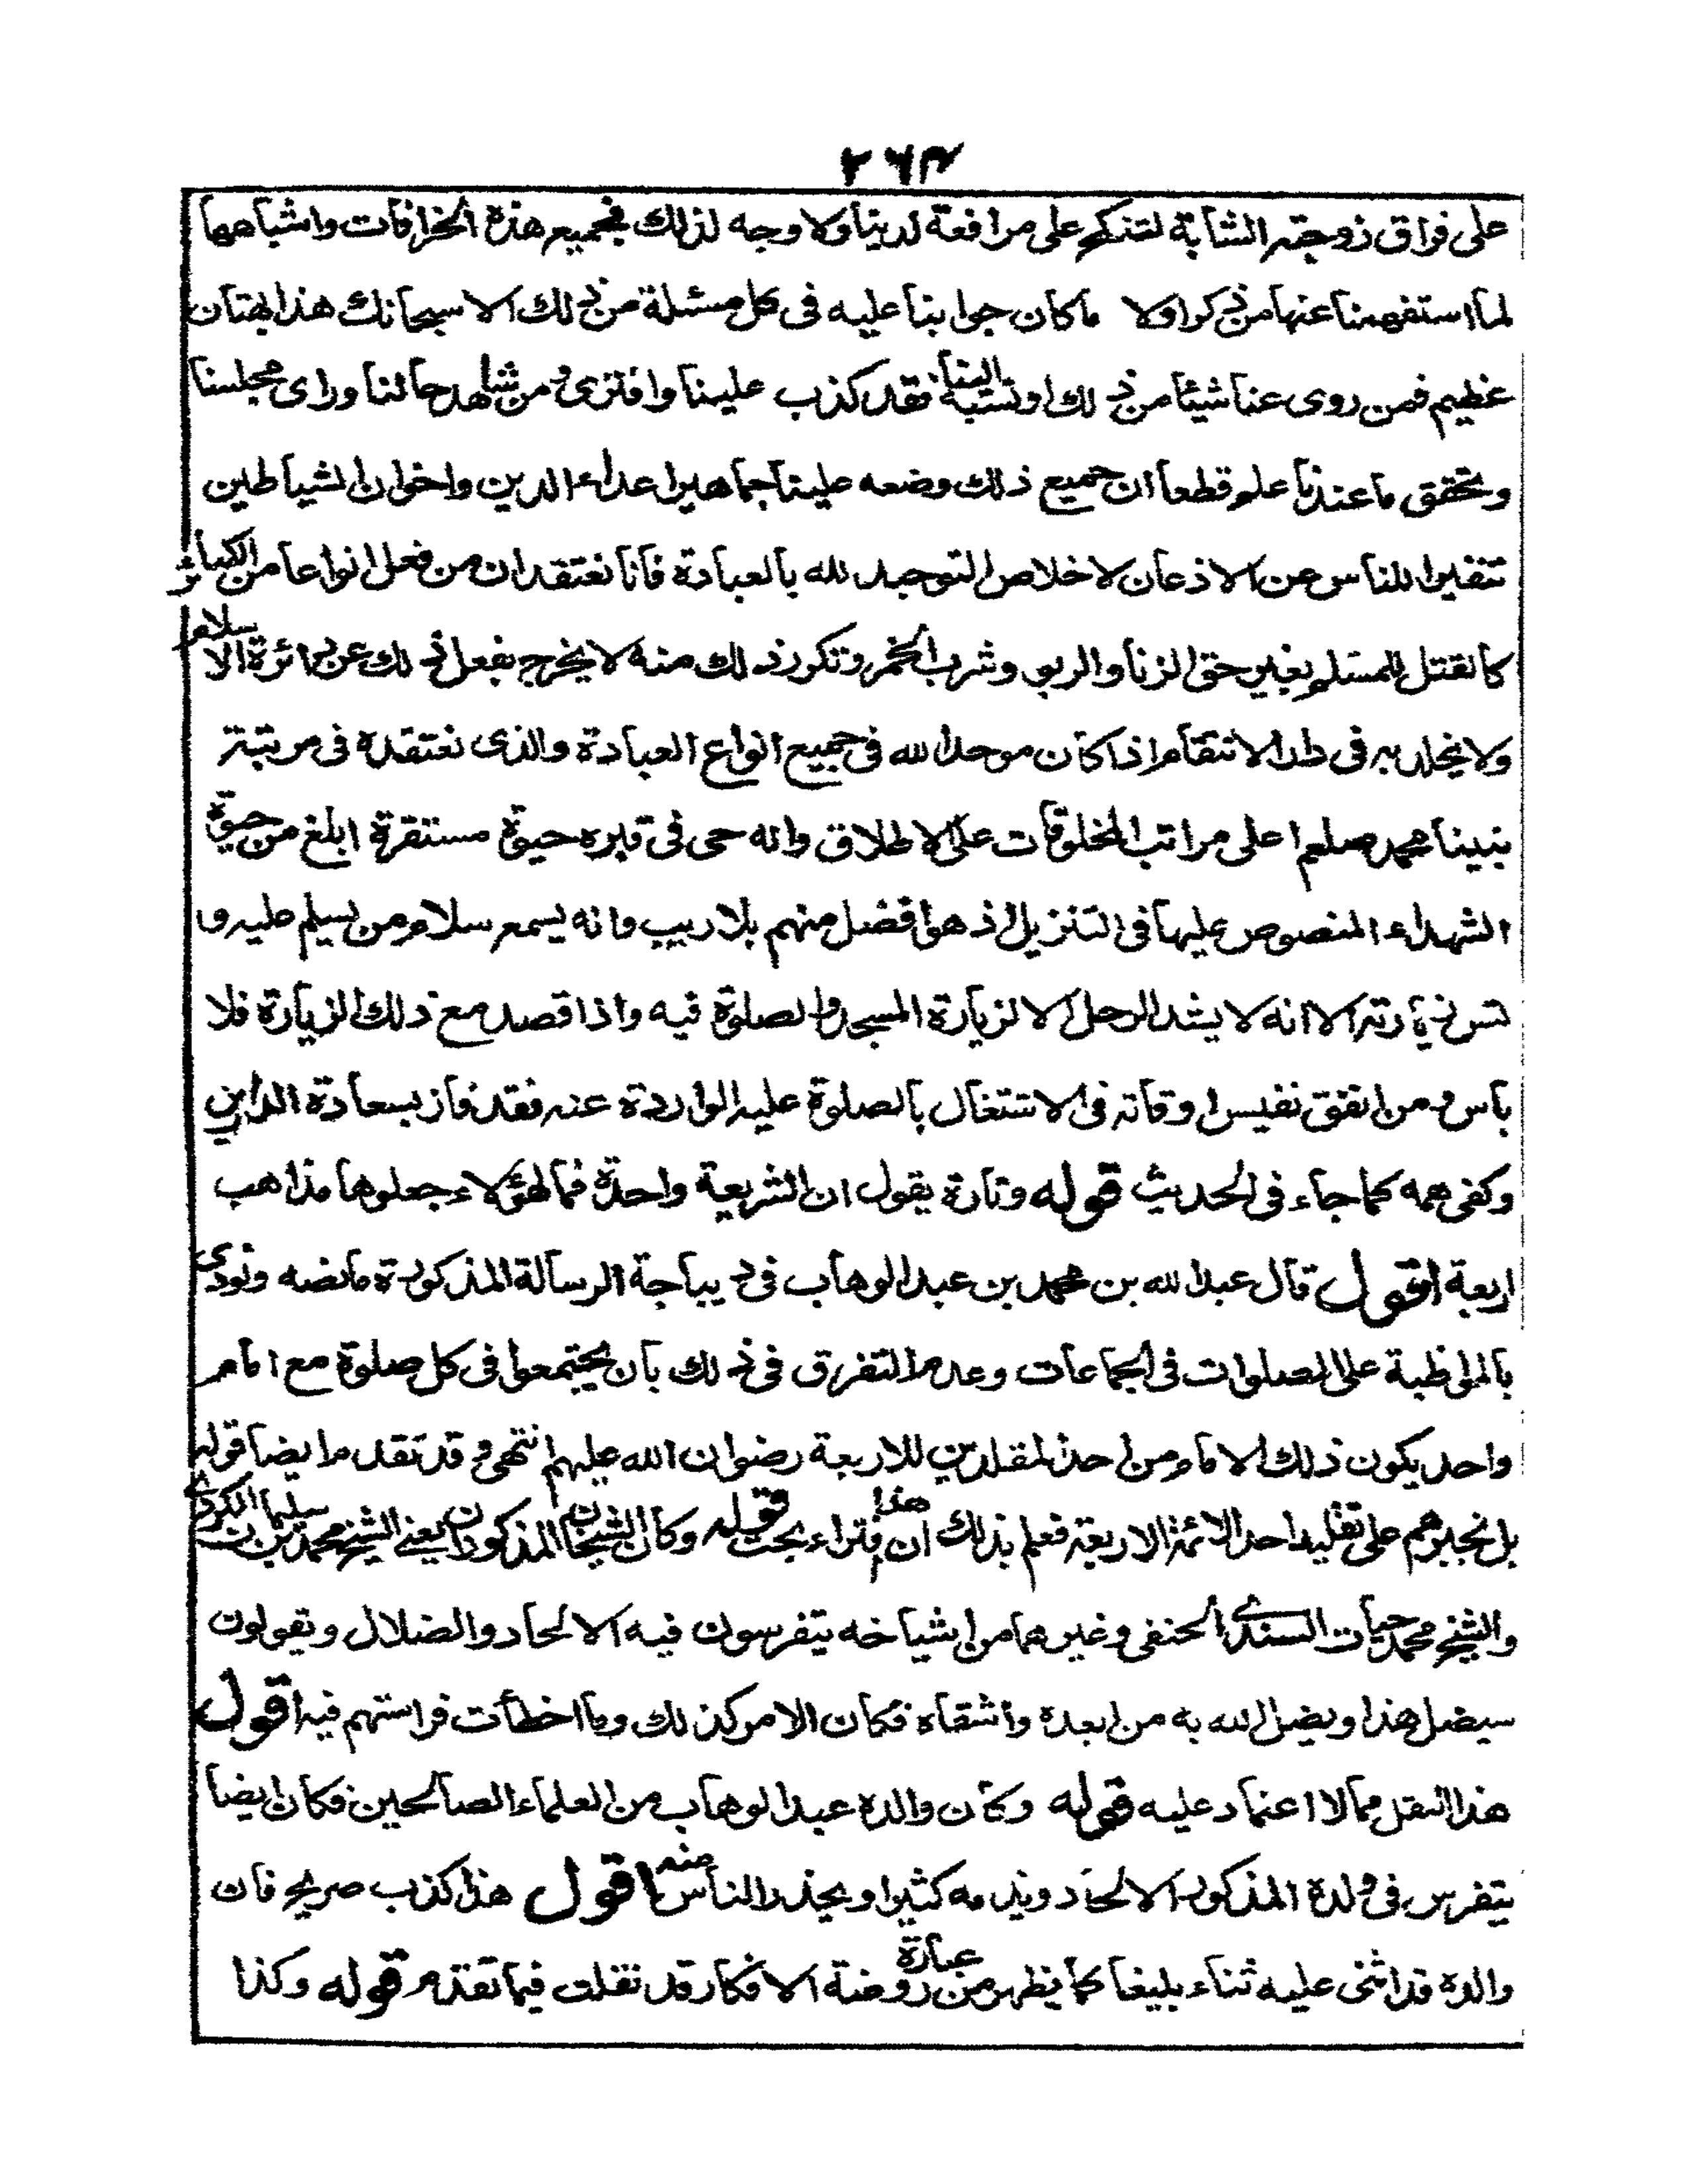 ٤٦٣
على فراق زوجته الشابة لتنكح على مرافعة لدينا ولا وجه لذلك فجميع هذه الخرافات واشباهها
لما استفهمنا عنها من ذكر اولا ما كان جوابنا عليه فى كل مسئلة من ذلك الا سبحانك هذا بهتان
عظيم فمن روى عنا شيئا من ذلك او نسبه الينا فقد كذب علينا وافترى ومن شاهد حالنا وراى مجلسنا
وتحقق ما عندنا علم قطعا ان جميع ذلك وضعه علينا جماهير اعداء الدين واخوان الشياطين
تنفيرا للناس عن الاذعان لاخلاص التوحيد لله بالعبادة فانا نعتقد ان من فعل انواعا من الكبائر
كالقتل للمسلم بغير حق والزنا والربو وشرب الخمر وتكرر ذلك منه لا يخرج بفعل ذلك عن دائرة الاسلام
ولا يخلد به فى دار الانتقام اذا كان موحدا لله فى جميع انواع العبادة والذى نعتقده فى مرتبة
نبينا محمد صلعم اعلى مراتب المخلوقات على الاطلاق وانه حى فى قبره حيوة مستقرة ابلغ من حيوة
الشهداء المنصوص عليها فى التنزيل اذ هو افضل منهم بلا ريب وانه يسمع سلام من يسلم عليه و
تسن زيارته الا انه لا يشد الرحل الا لزيارة المسجد والصلوة فيه واذا قصد مع ذلك الزيارة فلا
باس ومن انفق نفيس اوقاته فى الاشتغال بالصلوة عليه الواردة عنه فقد فاز بسعادة الدارين
وكفى همه كما جاء فى الحديث قوله وتارة يقول ان الشريعة واحدة فما لهؤلاء جعلوها مذاهب
اربعة اقول قال عبد الله بن محمد بن عبد الوهاب فى ديباجة الرسالة المذكورة ما نصه ونودى
بالمواظبة على الصلوات فى الجماعات وعدم التفرق فى ذلك بان يجتمعوا فى كل صلوة مع امام
واحد يكون ذلك الامام من احد المقلدين للاربعة رضوان الله عليهم انتهى وقد تقدم ايضا قوله
بل نجبرهم على تقليد احد الائمة الاربعة فعلم بذلك ان هذا افتراء بحت قوله وكان الشيخان المذكوران يعنى الشيخ محمد بن سليمان الكردى
والشيخ محمد حيات السندى الحنفى وغيرهما من اشياخه يتفرسون فيه الالحاد والضلال ويقولون
سيضل هذا ويضل الله به من ابعده واشقاه فكان الامر كذلك وما اخطأت فراستهم فيه اقول
هذا النقل مما لا اعتماد عليه قوله وكان والده عبد الوهاب من العلماء الصالحين فكان ايضا
يتفرس فى ولده المذكور الالحاد ويذمه كثيرا ويحذر الناس منه اقول هذا كذب صريح فان
والده قد اثنى عليه ثناء بليغا كما يظهر من عبارة روضة الافكار قد نقلت فيما تقدم قوله وكذا